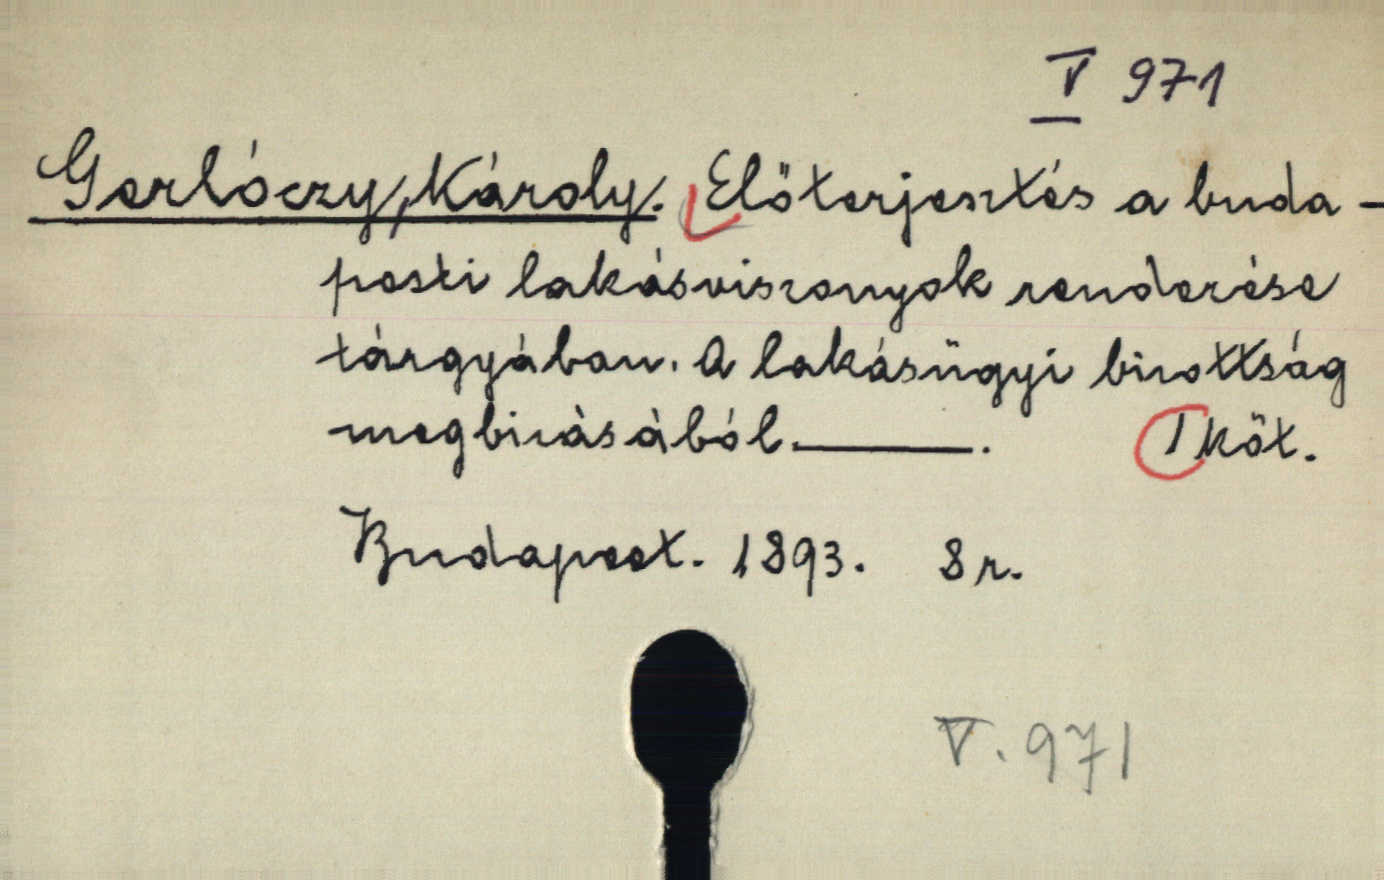 V 971
Gerlóczy, Károly. Előterjesztés a buda-
pesti lakásviszonyok rendezése
tárgyában. A lakásügyi bizottság
megbizásából. ———. 1 köt.
Budapest. 1893. 8r.
V. 971